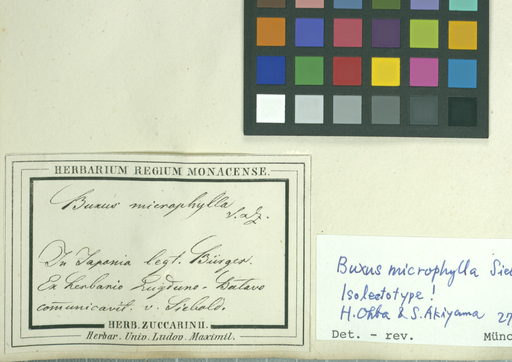 HERBARIUM REGIUM MONACENSE.
Buxus microphylla
S. & Z.
In Japonia legt. Bürger.
Ex herbario Lugduno-Batavo
communicavit. v. Siebold.
HERB. ZUCCARINII.
Herbar. Univ. Ludov. Maximil.
Buxus microphylla Sieb
Isolectotype!
H. Ohba & S. Akiyama 27
Det. - rev. Münc